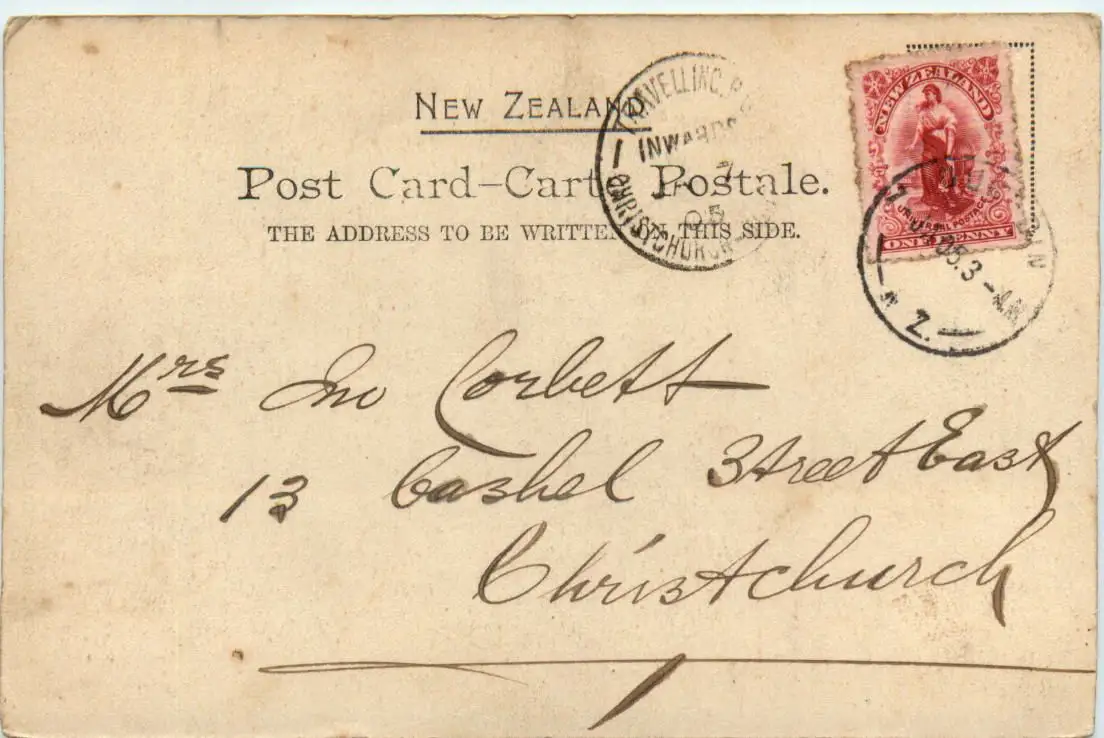 NEW ZEALAND
Post Card–Carte Postale.
THE ADDRESS TO BE WRITTEN ON THIS SIDE.
TRAVELLING. P.
INWARDS
7
05
CHRISTCHURCH
NEW ZEALAND
UNIVERSAL POSTAGE
ONE PENNY
05.3-AM
N.Z.
Mrs Jno Corbett
13 Cashel Street East
Christchurch